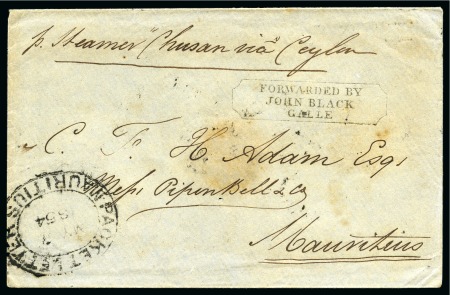 p. Steamer "Chusan" via Ceylon
FORWARDED BY
JOHN BLACK
GALLE
C. F. H. Adam Esqr
Messrs Pipon Bell & Co
Mauritius
PACKET LETTER MAURITIUS
1854